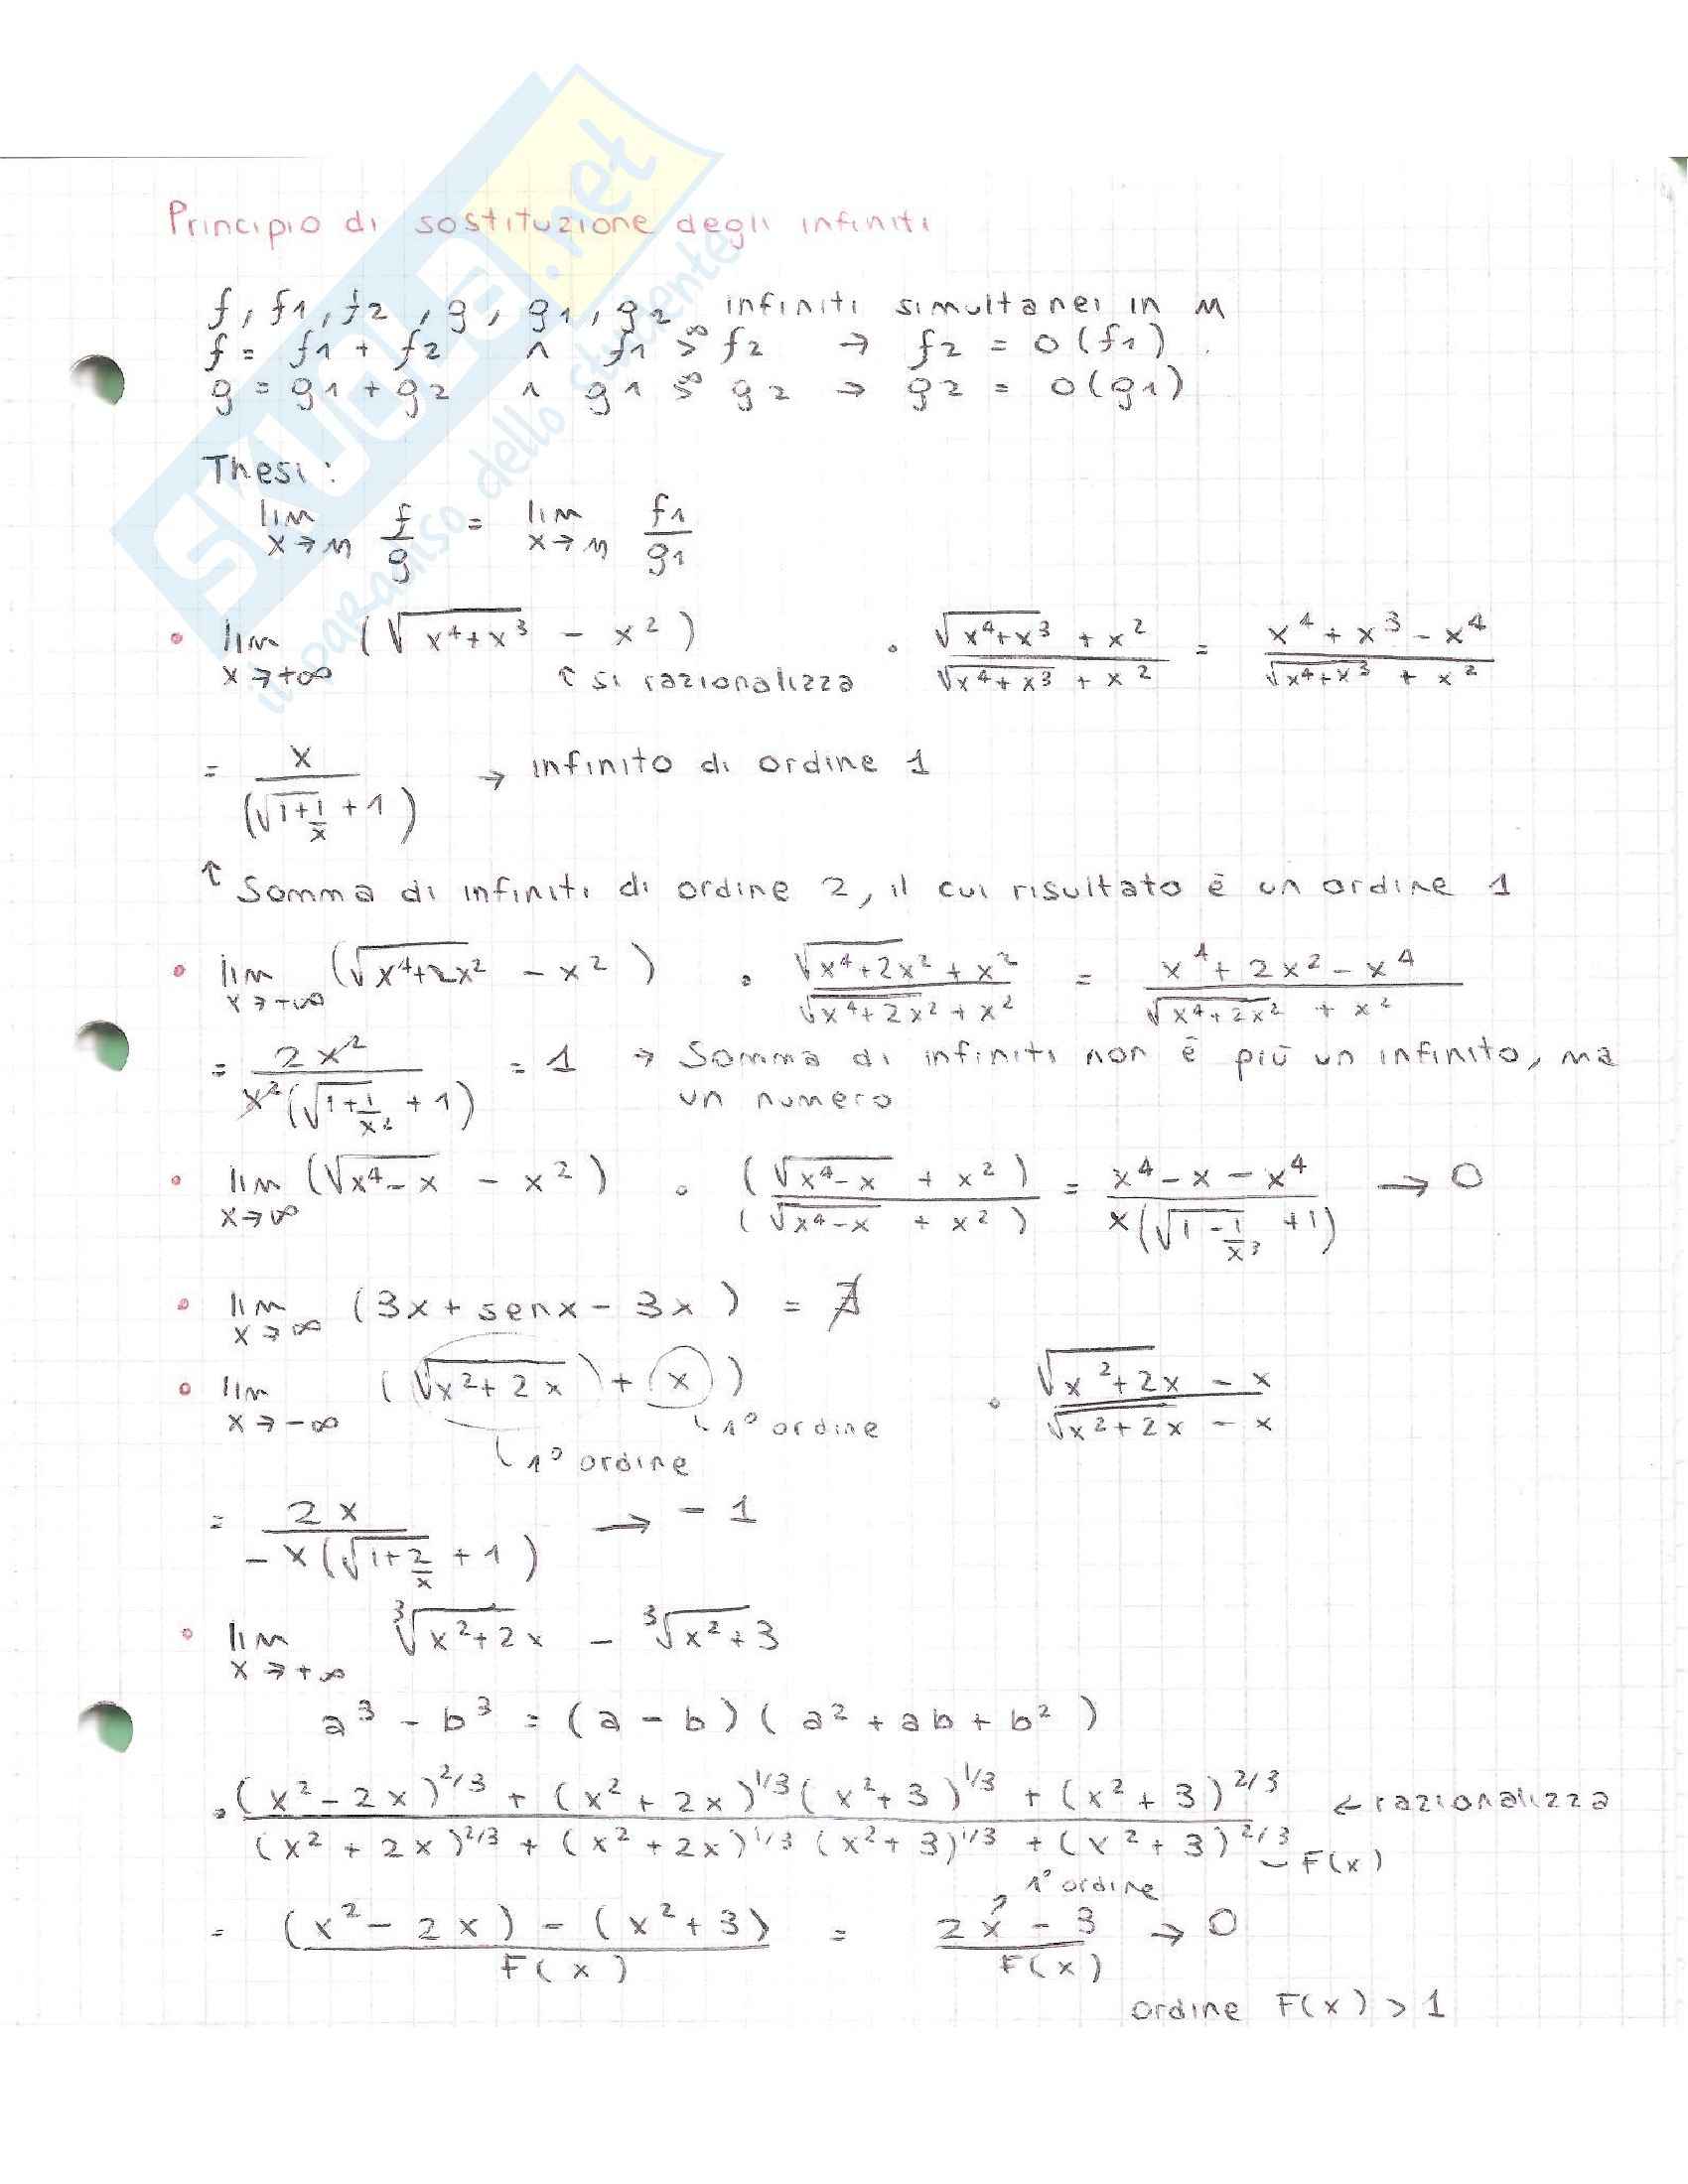 SKUOLA.net
il paradiso dello studente
Principio di sostituzione degli infiniti
f, f1, f2, g, g1, g2 infiniti simultanei in M
f = f1 + f2 ∧ f1 >^∞ f2 → f2 = o(f1).
g = g1 + g2 ∧ g1 >^∞ g2 → g2 = o(g1)
Thesi:
lim x→M f/g = lim x→M f1/g1
• lim x→+∞ (√(x⁴+x³) - x²) · (√(x⁴+x³) + x²)/(√(x⁴+x³) + x²) = (x⁴ + x³ - x⁴)/(√(x⁴+x³) + x²)
↑ si razionalizza
= x/(√(1+1/x) + 1) → infinito di ordine 1
↑ Somma di infiniti di ordine 2, il cui risultato è un ordine 1
• lim x→+∞ (√(x⁴+2x²) - x²) · (√(x⁴+2x²) + x²)/(√(x⁴+2x²) + x²) = (x⁴ + 2x² - x⁴)/(√(x⁴+2x²) + x²)
= 2x²/(x²(√(1+1/x²) + 1)) = 1 → Somma di infiniti non è più un infinito, ma
un numero
• lim x→∞ (√(x⁴-x) - x²) · (√(x⁴-x) + x²)/(√(x⁴-x) + x²) = (x⁴ - x - x⁴)/(x(√(1-1/x³) + 1)) → 0
• lim x→∞ (3x + senx - 3x) = ∄
• lim x→-∞ (√(x²+2x) + x) · (√(x²+2x) - x)/(√(x²+2x) - x)
1° ordine
1° ordine
= 2x/(-x(√(1+2/x) + 1)) → -1
• lim x→+∞ ³√(x²+2x) - ³√(x²+3)
a³ - b³ = (a - b)(a² + ab + b²)
· ((x² - 2x)^2/3 + (x² + 2x)^1/3 (x² + 3)^1/3 + (x² + 3)^2/3)/((x² + 2x)^2/3 + (x² + 2x)^1/3 (x² + 3)^1/3 + (x² + 3)^2/3) ← razionalizza
F(x)
1° ordine
= ((x² - 2x) - (x² + 3))/F(x) = (2x - 3)/F(x) → 0
ordine F(x) > 1